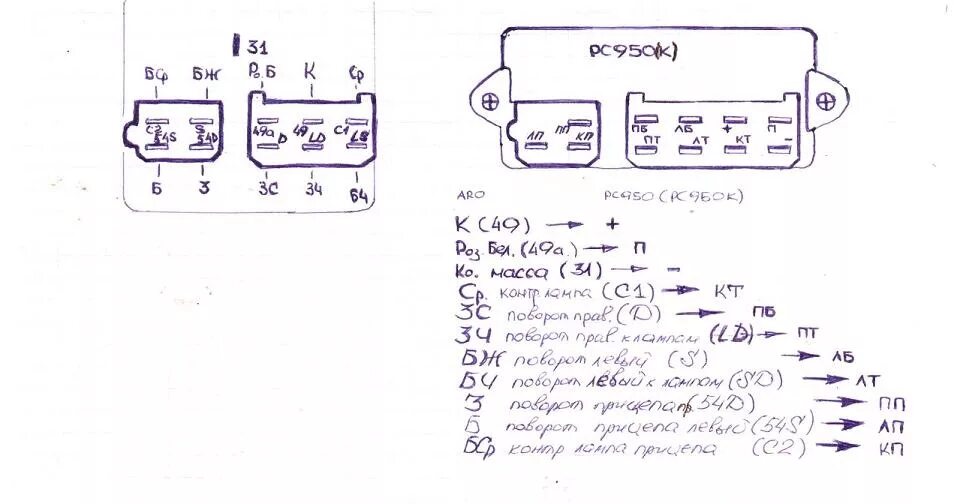 31
БФ БЖ Ро.Б К Ср
С2 S 49а 49 С1
54S 54D D LD LS
Б З ЗС ЗЧ БЧ
РС950(К)
ПП ПБ ЛБ + П
ЛП КП ПТ ЛТ КТ -
ARO РС950 (РС950К)
К (49) → +
Роз.Бел.(49а.) → П
Ко. масса (31) → -
Ср. контр лампа (С1) → КТ
ЗС поворот прав.(D) → ПБ
ЗЧ поворот прав. к лампам (LD) → ПТ
БЖ поворот левый (S) → ЛБ
БЧ поворот левый к лампам (SD) → ЛТ
З поворот прицепа пр.(54D) → ПП
Б поворот прицепа левый (54S) → ЛП
БФ контр лампа прицепа (С2) → КП